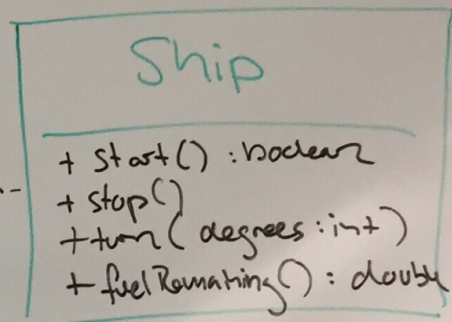 Ship
+ start() : boolean
+ stop()
+ turn( degrees : int )
+ fuelRemaining() : double